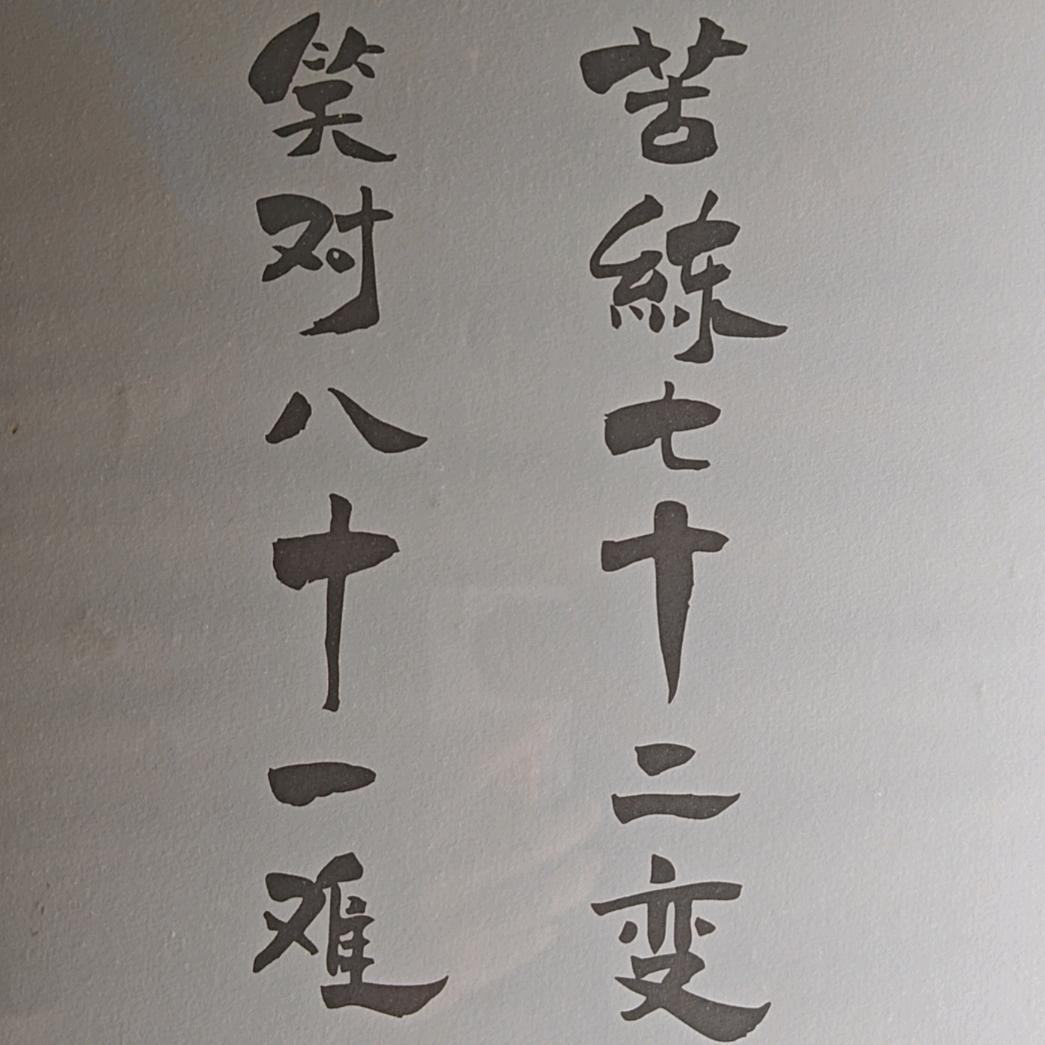 苦練七十二变
笑对八十一难